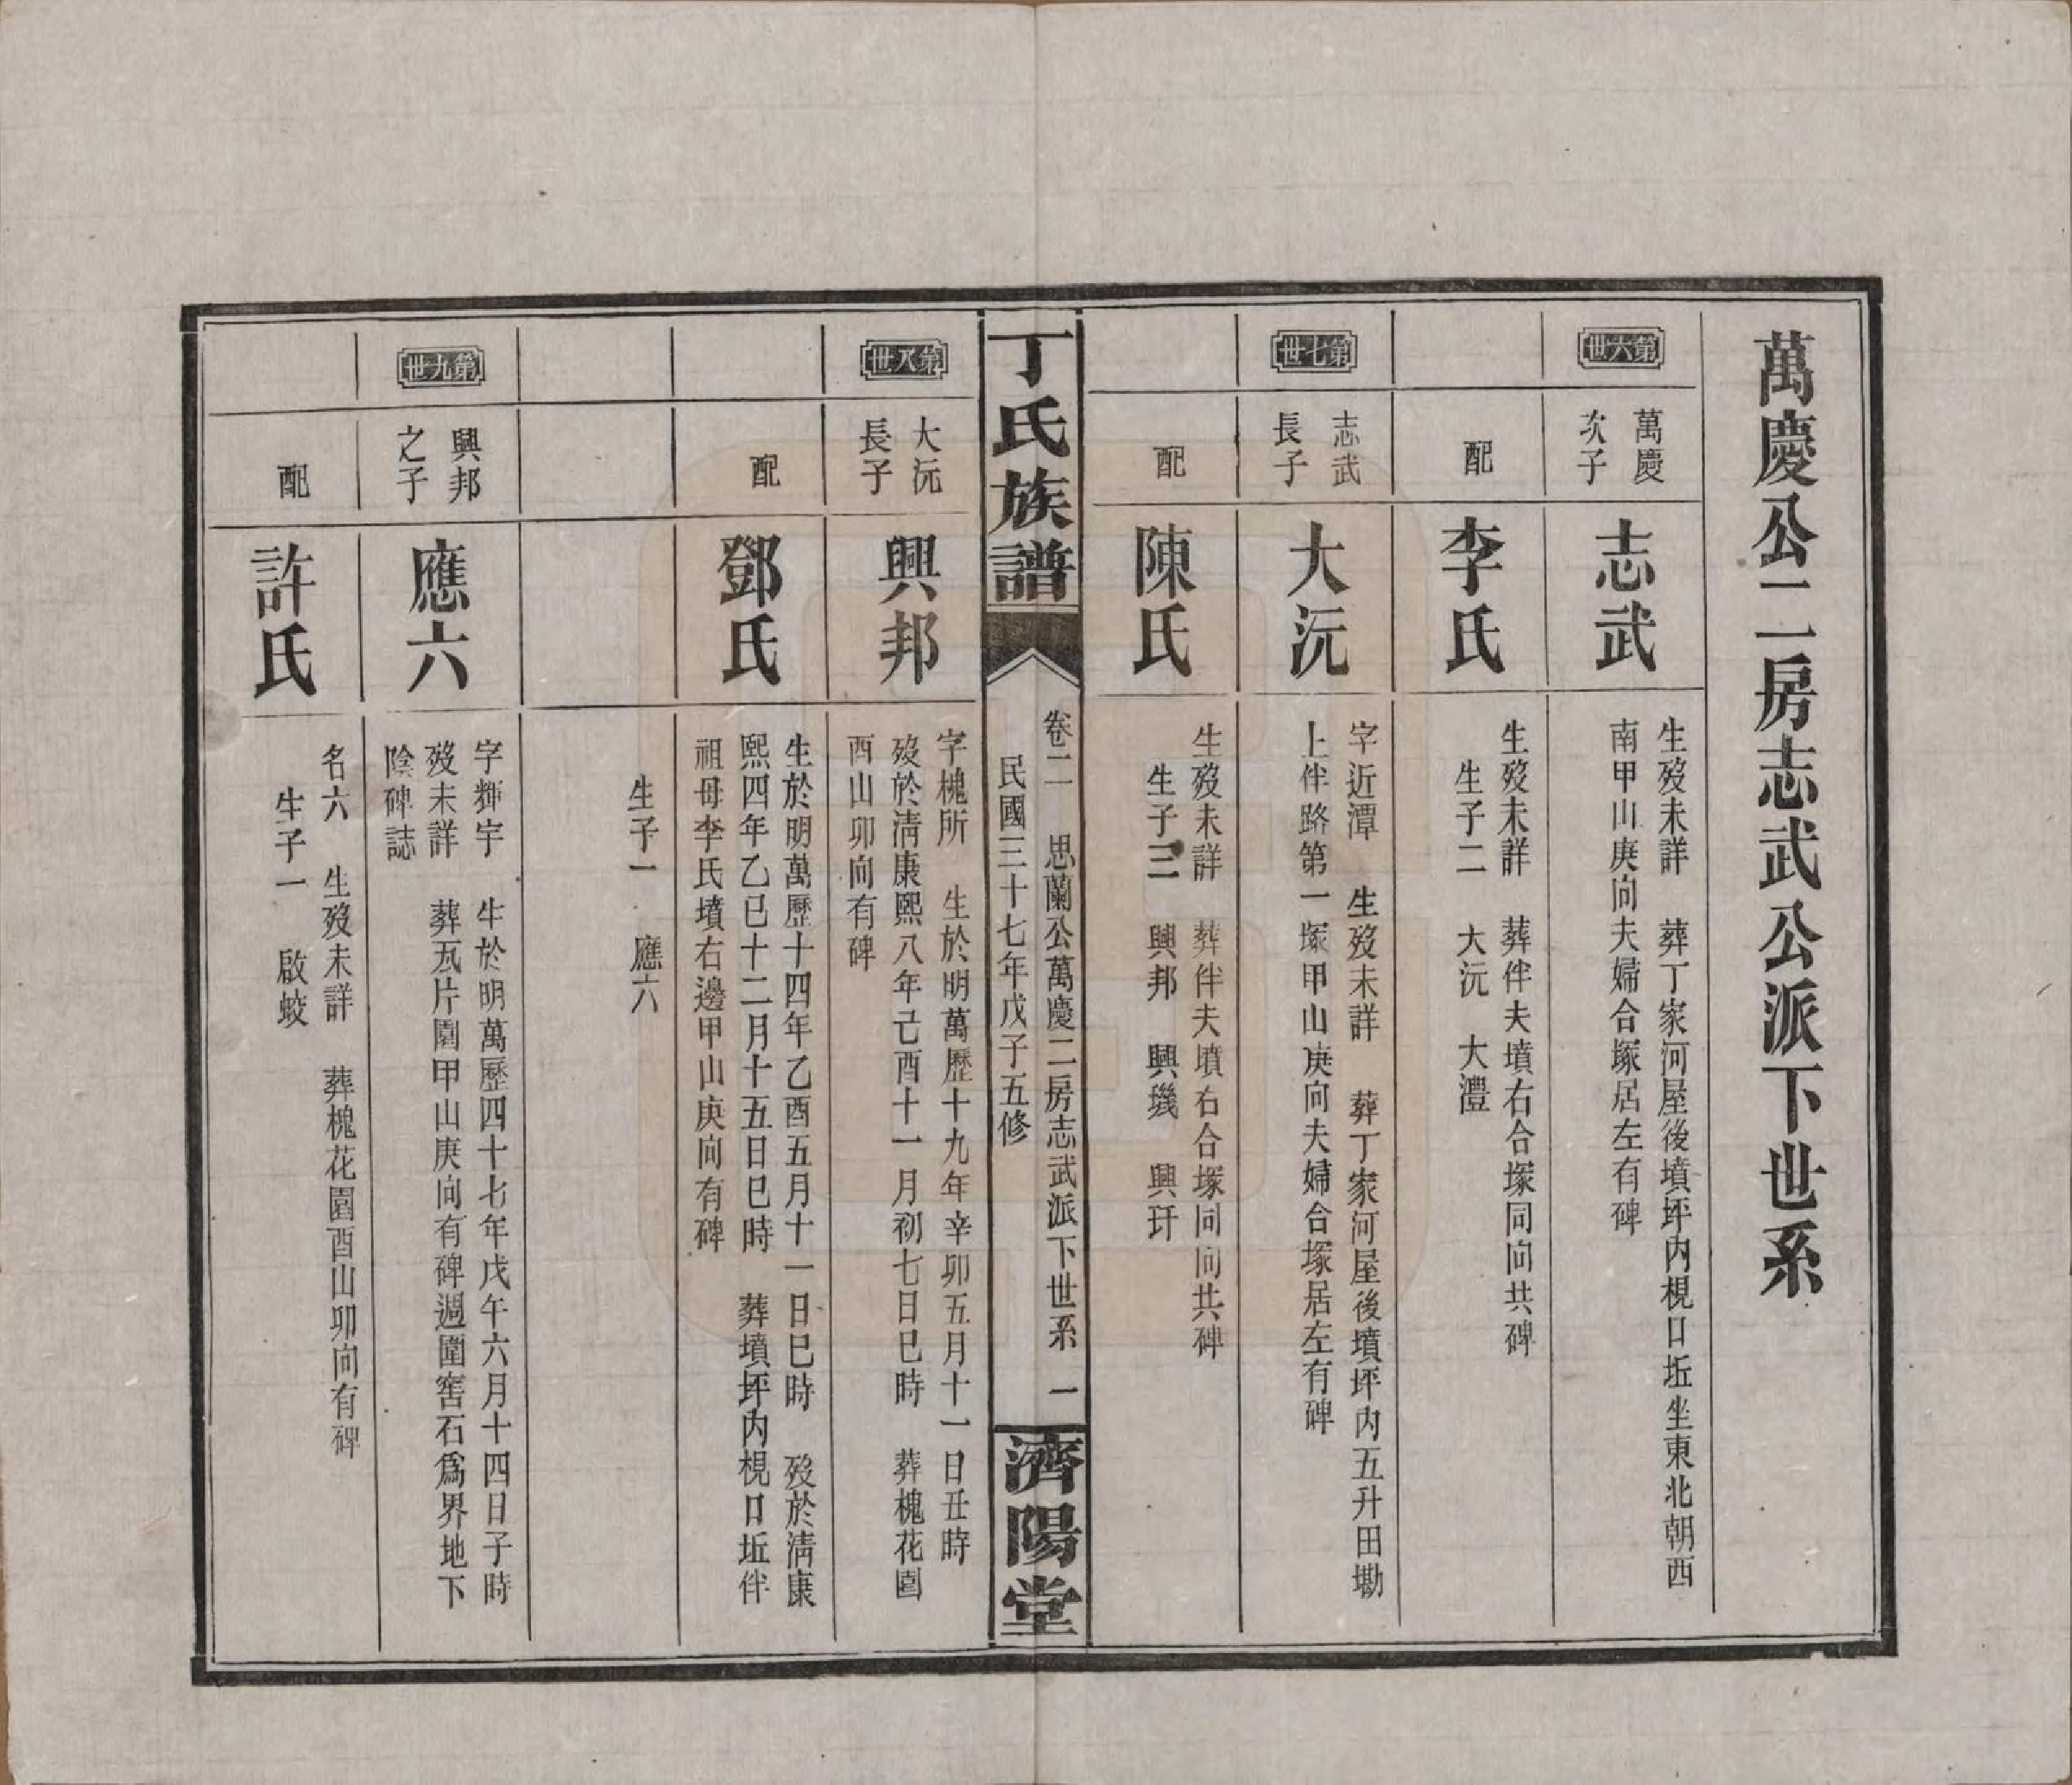 萬慶公二房志武公派下世系
第六世
萬慶
次子
志武
生歿未詳　葬丁家河屋後墳坪内梘口坵坐東北朝西
南甲山庚向夫婦合塚居左有碑
配
李氏
生歿未詳　葬伴夫墳右合塚同向共碑
生子二　大沅　大澧
第七世
志武
長子
大沅
字近潭　生歿未詳　葬丁家河屋後墳坪内五升田勘
上伴路第一塚甲山庚向夫婦合塚居左有碑
配
陳氏
生歿未詳　葬伴夫墳右合塚同向共碑
生子三　興邦　興璣　興玗
丁氏族譜
卷二　思蘭公萬慶二房志武派下世系　一
民國三十七年戊子五修
濟陽堂
第八世
大沅
長子
興邦
字槐所　生於明萬歷十九年辛卯五月十一日丑時
歿於淸康熙八年己酉十一月初七日巳時　葬槐花園
酉山卯向有碑
配
鄧氏
生於明萬歷十四年乙酉五月十一日巳時　歿於淸康
熙四年乙巳十二月十五日巳時　葬墳坪内梘口坵伴
祖母李氏墳右邊甲山庚向有碑
生子一　應六
第九世
興邦
之子
應六
字輝宇　生於明萬歷四十七年戊午六月十四日子時
歿未詳　葬瓦片園甲山庚向有碑週圍窖石爲界地下
陰碑誌
配
許氏
名六　生歿未詳　葬槐花園酉山卯向有碑
生子一　啟蛟